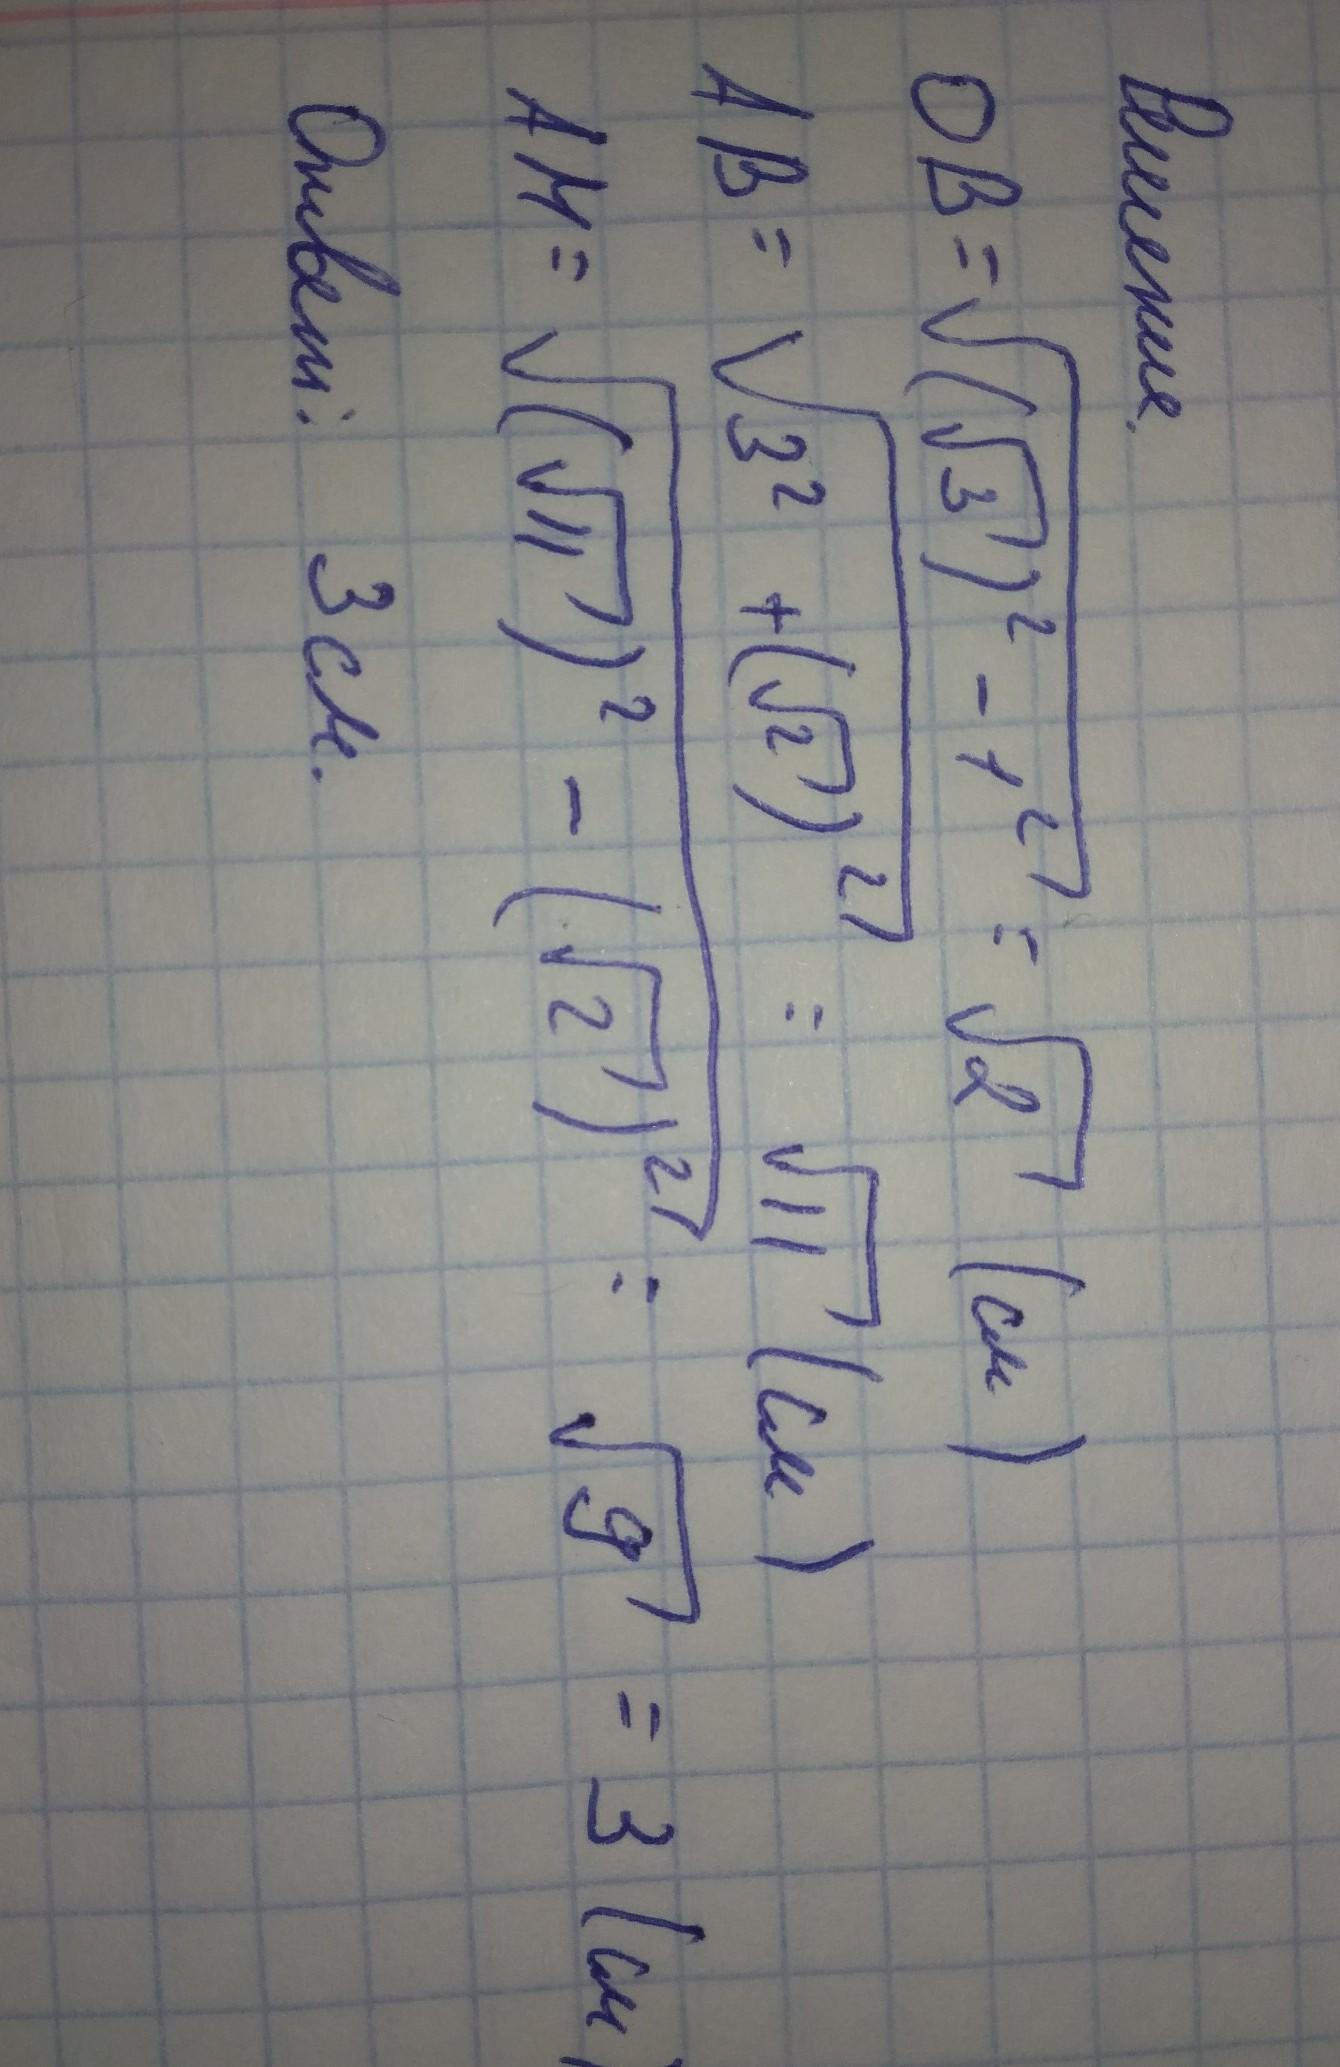 Решение.
OB = √((√3)² - 1²) = √2 (см)
AB = √(3² + (√2)²) = √11 (см)
AM = √((√11)² - (√2)²) = √9 = 3 (см)
Ответ: 3 см.